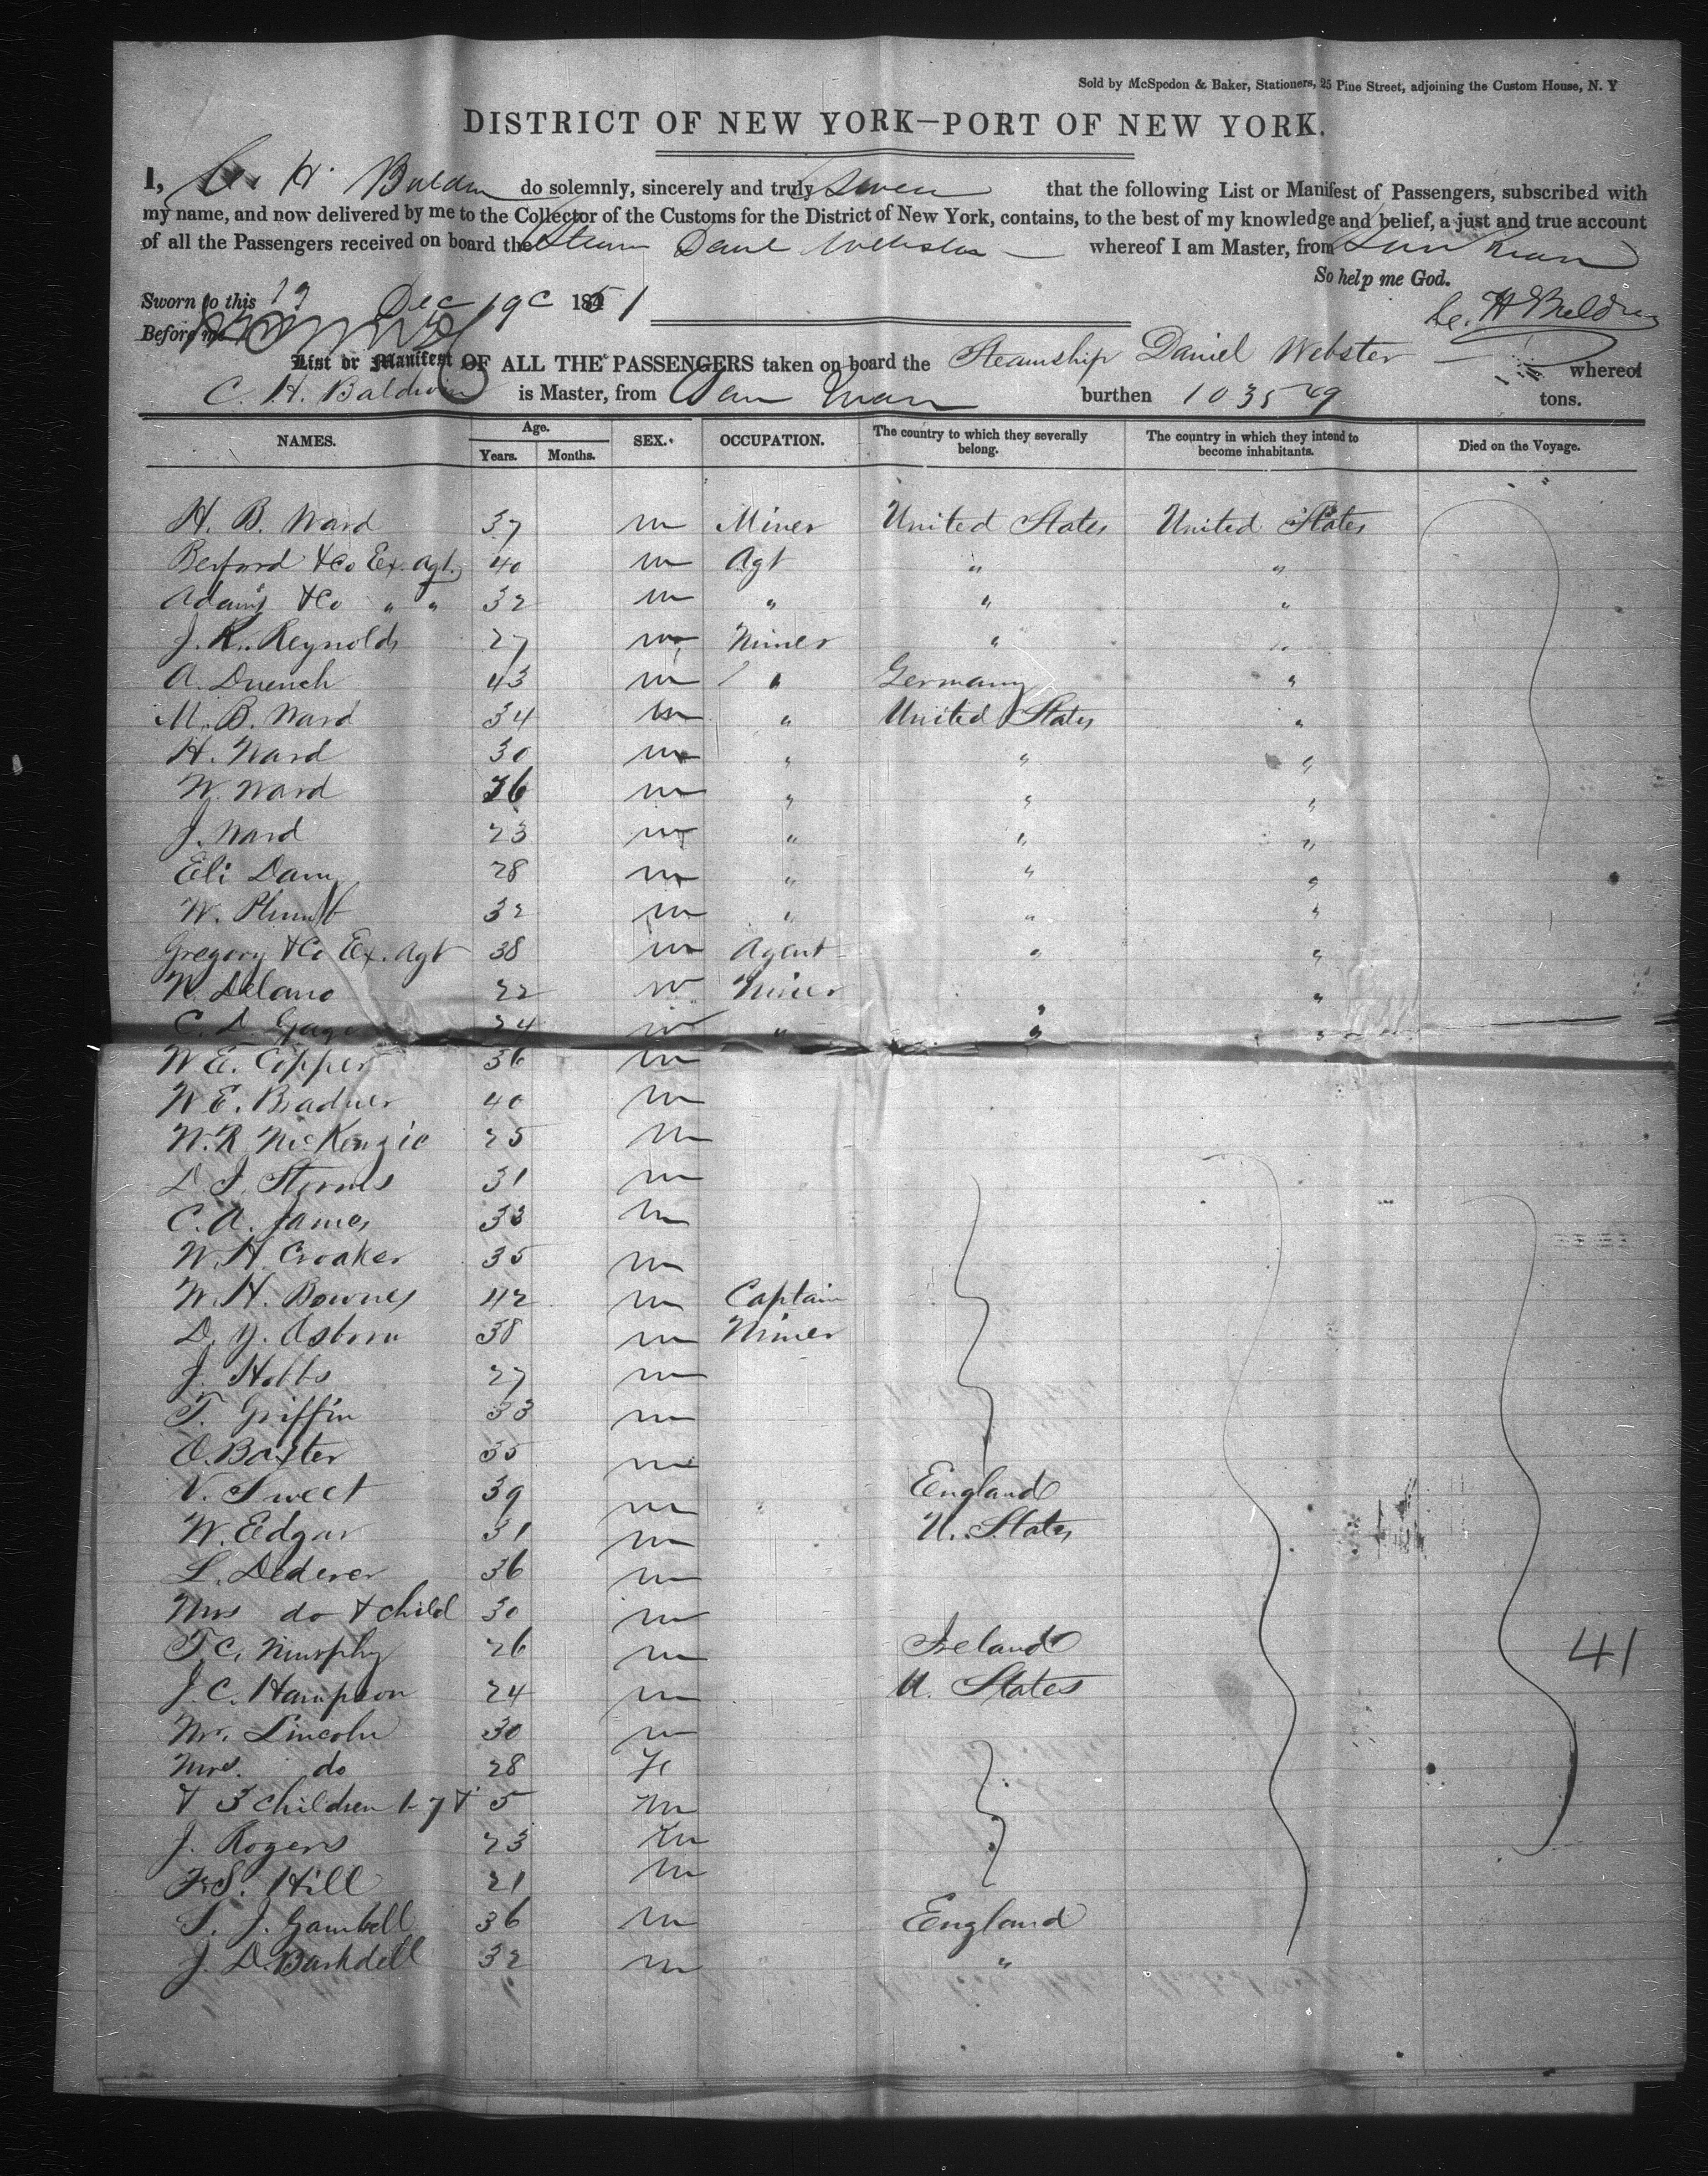 Sold by McSpedon & Baker, Stationers, 25 Pine Street, adjoining the Custom House, N. Y
DISTRICT OF NEW YORK—PORT OF NEW YORK.
I, C. H. Baldwin do solemnly, sincerely and truly swear that the following List or Manifest of Passengers, subscribed with
my name, and now delivered by me to the Collector of the Customs for the District of New York, contains, to the best of my knowledge and belief, a just and true account
of all the Passengers received on board the Steam Danl Webster whereof I am Master, from San Juan
So help me God.
Sworn to this Dec 1851
C. H. Baldwin
Before me
List or Manifest OF ALL THE PASSENGERS taken on board the Steamship Daniel Webster whereof
C. H. Baldwin is Master, from San Juan burthen 1035 49 tons.
NAMES. Age. Years. Months. SEX. OCCUPATION. The country to which they severally belong. The country in which they intend to become inhabitants. Died on the Voyage.
H. B. Ward 37 m Miner United States United States
Berford & Co Ex. Agt. 40 m Agt " "
Adams & Co " " 32 m " " "
J. R. Reynolds 27 m Miner " "
A. Duench 43 m " Germany "
M. B. Ward 34 m " United States "
H. Ward 30 m " " "
W. Ward 36 m " " "
J. Ward 23 m " " "
Eli Dam 28 m " " "
W. Plumb 32 m " " "
Gregory & Co Ex. Agt 38 m Agent " "
N. Delano 22 m Miner " "
C. D. Gage 24 m " " "
W. E. Copper 36 m
W. E. Bradner 40 m
N. R. McKenzie 25 m
D. J. Storms 31 m
C. A. James 33 m
W. H. Croaker 35 m
W. H. Bownes 42 m Captain
D. Y. Osborn 38 m Miner
J. Hobbs 27 m
T. Griffin 33 m
O. Baxter 35 m
V. Sweet 39 m England
W. Edgar 31 m U. States
L. Dederer 36 m
Mrs do & child 30 m
T. C. Murphy 26 m Ireland 41
J. C. Hampson 24 m U. States
Mr. Lincoln 30 m
Mrs. do 28 Fe
& 3 children 1- 7 & 5 m
J. Rogers 23 m
F. S. Hill 21 m
T. J. Gambell 36 m England
J. D. Barkdell 32 m "